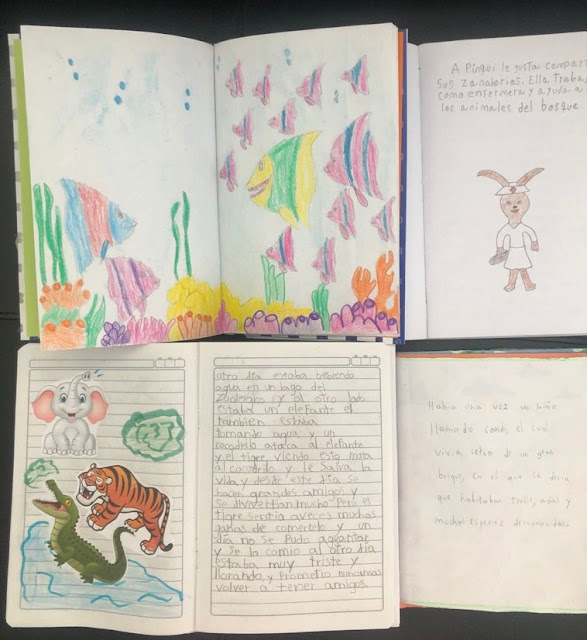 A Pinqui le gusta compart
sus zanahorias. Ella Traba
como enfermera y ayuda a
los animales del bosque
otro dia estaba bebiendo
agua en un lago del
zoologico y al otro lado
estaba un elefante el
tambien estaba
tomando agua y un
cocodrilo ataca al elefante
y el tigre viendo esto mata
al cocodrilo y le salva la
vida y desde este dia se
hacen grandes amigos y
se divertian mucho Pero el
tigre sentia a veces muchas
ganas de comerselo y un
dia no se Pudo aguantar
y se lo comio al otro dia
estaba muy triste y
llorando, y Prometio nunca mas
volver a tener amigos.
Habia una vez un niño
llamado el cual
vivia cerca de un gran
bosque, en el que se decia
que habitaban trolls,
muchas especies desconocidas.